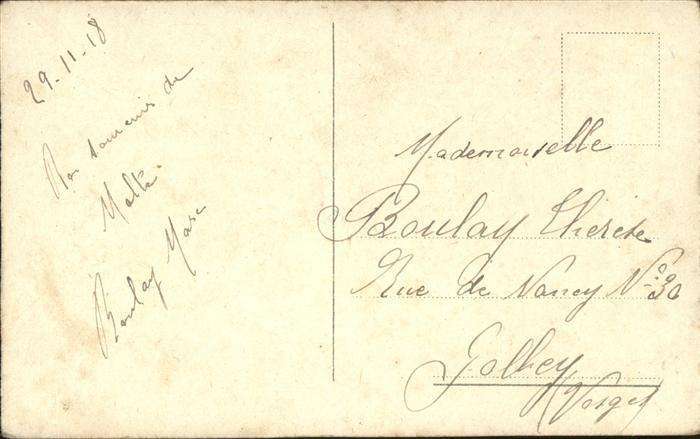 29-11-18
Bon souvenir de
Malte
Boulay Marc
Mademoiselle
Boulay Therese
Rue de Nancy No 30
Golbey
(Vosges)